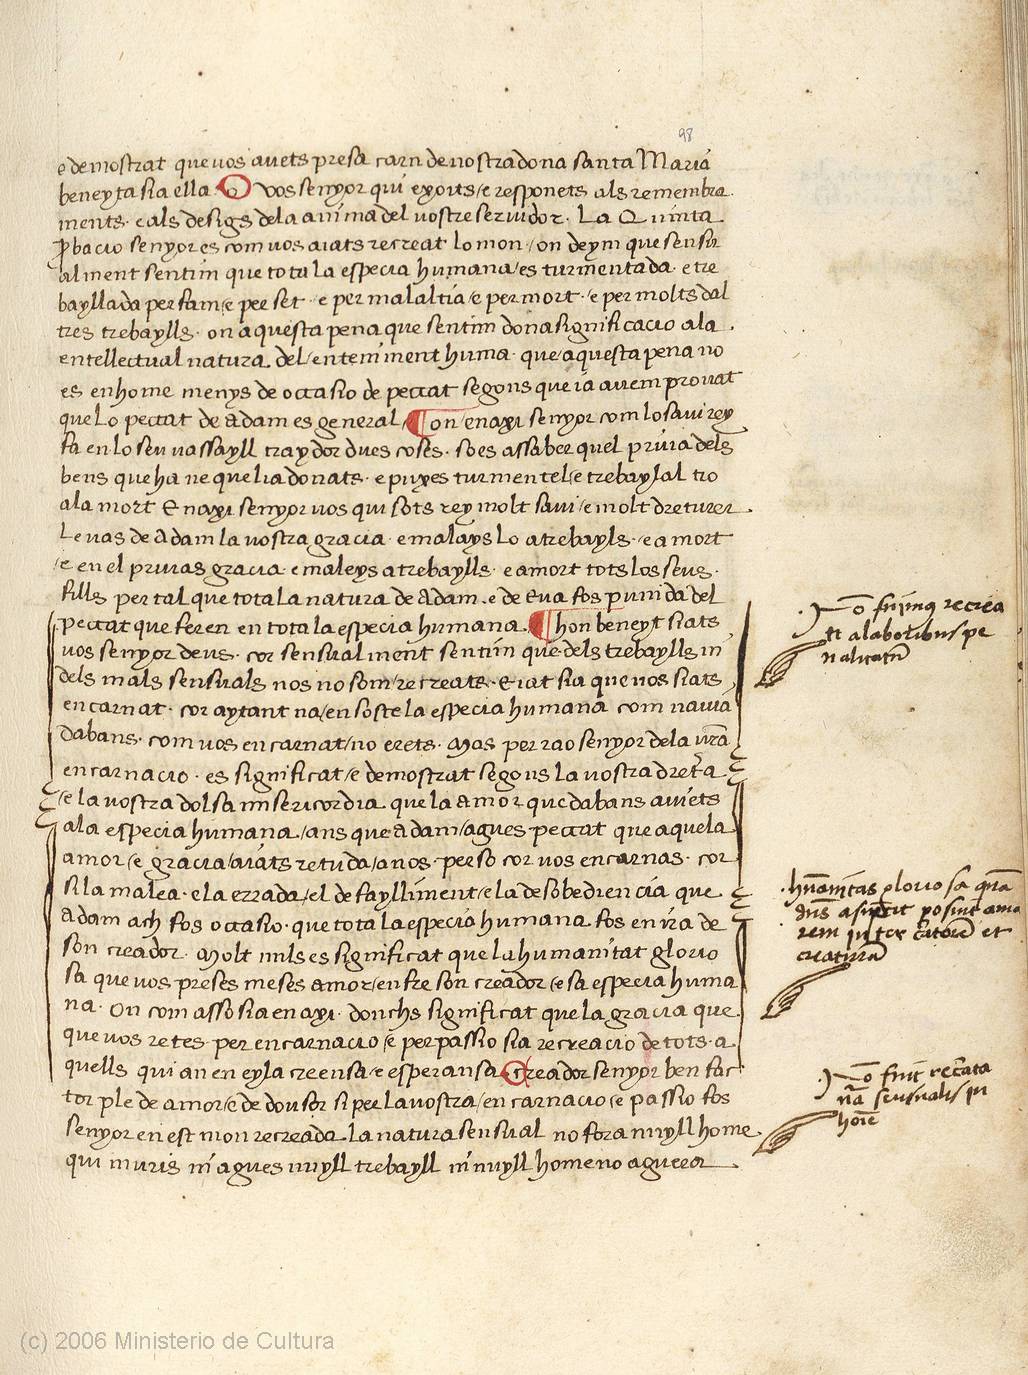 98
e demostrat que uos auets presa carn de nostra dona santa Maria
beneyta sia ella. O vos senyor qui exoits / e responets als remembra
ments. e als desigs de la anima del uostre seruidor. La Quinta
ꝓbacio senyor es com vos aiats recreat lo mon / on deym que sensu
alment sentim que tota la especia humana / es turmentada. e tre
bayllada per fam / e per set. e per malaltia / e per mort. e per molts dal
tres trebaylls. on aquesta pena que sentim dona significacio a la
entellectual natura del / enteniment huma. que / aquesta pena no
es en home menys de occasio de peccat segons que ia auem prouat
que lo peccat de adam es general / ¶ on / enaxi senyor com lo saui rey
fa en lo seu uassayll traydor dues coses. so es assaber quel priua dels
bens que ha ne que li a donats. e puxes turmentel / e trebaylal tro
a la mort E naxi senyor uos qui sots rey molt saui / e molt dreturer
Leuas de Adam la uostra gracia. e malays lo a trebayls. e a mort
/ e en el priuas gracia e maleys a trebaylls. e a mort tots los seus.
fills per tal que tota la natura de Adam. e de Eua fos punida del
peccat que feren en tota la especia humana. ¶ hon beneyt siats
uos senyor deus. cor sensualment sentim que dels trebaylls ni
dels mals sensuals nos no som / recreats. E iat sia que uos siats
encarnat. cor aytant na / en soste la especia humana com nauia
dabans. com uos encarnat / no erets. Mas per rao senyor de la vr̃a
encarnacio. es significat / e demostrat segons la uostra dreta
/ e la uostra dolsa misericordia que la amor que dabans auiets
a la especia humana / ans que adam / agues peccat que aquela
amor / e gracia / aiats retuda / a nos. per so cor uos encarnas. cor
si la malea. e la errada / el defaylliment / e la desobediencia que
adam ach fos occasio. que tota la especia humana fos en ira de
son creador. Molt mils es significat que la humanitat glorio
sa que uos preses meses amor / enfre son creador / e sa especia huma
na. On com asso sia enaxi. donchs significat que la gracia que.
que uos retes per encarnacio / e per passio sia recreacio de tots a
quells qui an en eyla creensa / e esperansa. Creador senyor ben fac
tor ple de amor / e de dousor si per la uostra / encarnacio / e passio fos
senyor en est mon recreada la natura sensual no fora nuyll home
qui muris ni agues nuyll trebayll ni nuyll home no aguera
No fuimꝰ recrea
ti a laboribus pe
nalitatũ
humãitas glorio sa quã
dñs asũpcit posuit amo
rem inter c̃atorẽ et
creaturã
No fuit rec̃ata
nã sensualis in
hoĩe
(c) 2006 Ministerio de Cultura